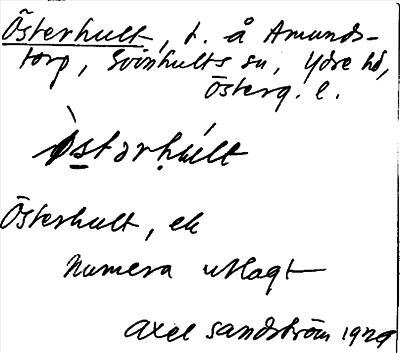 Österhult, t. å Amunds-
torp, Svinhults sn, Ydre hd,
Österg. l.
Österhult, ek
Numera utlagt
Axel Sandström 1929